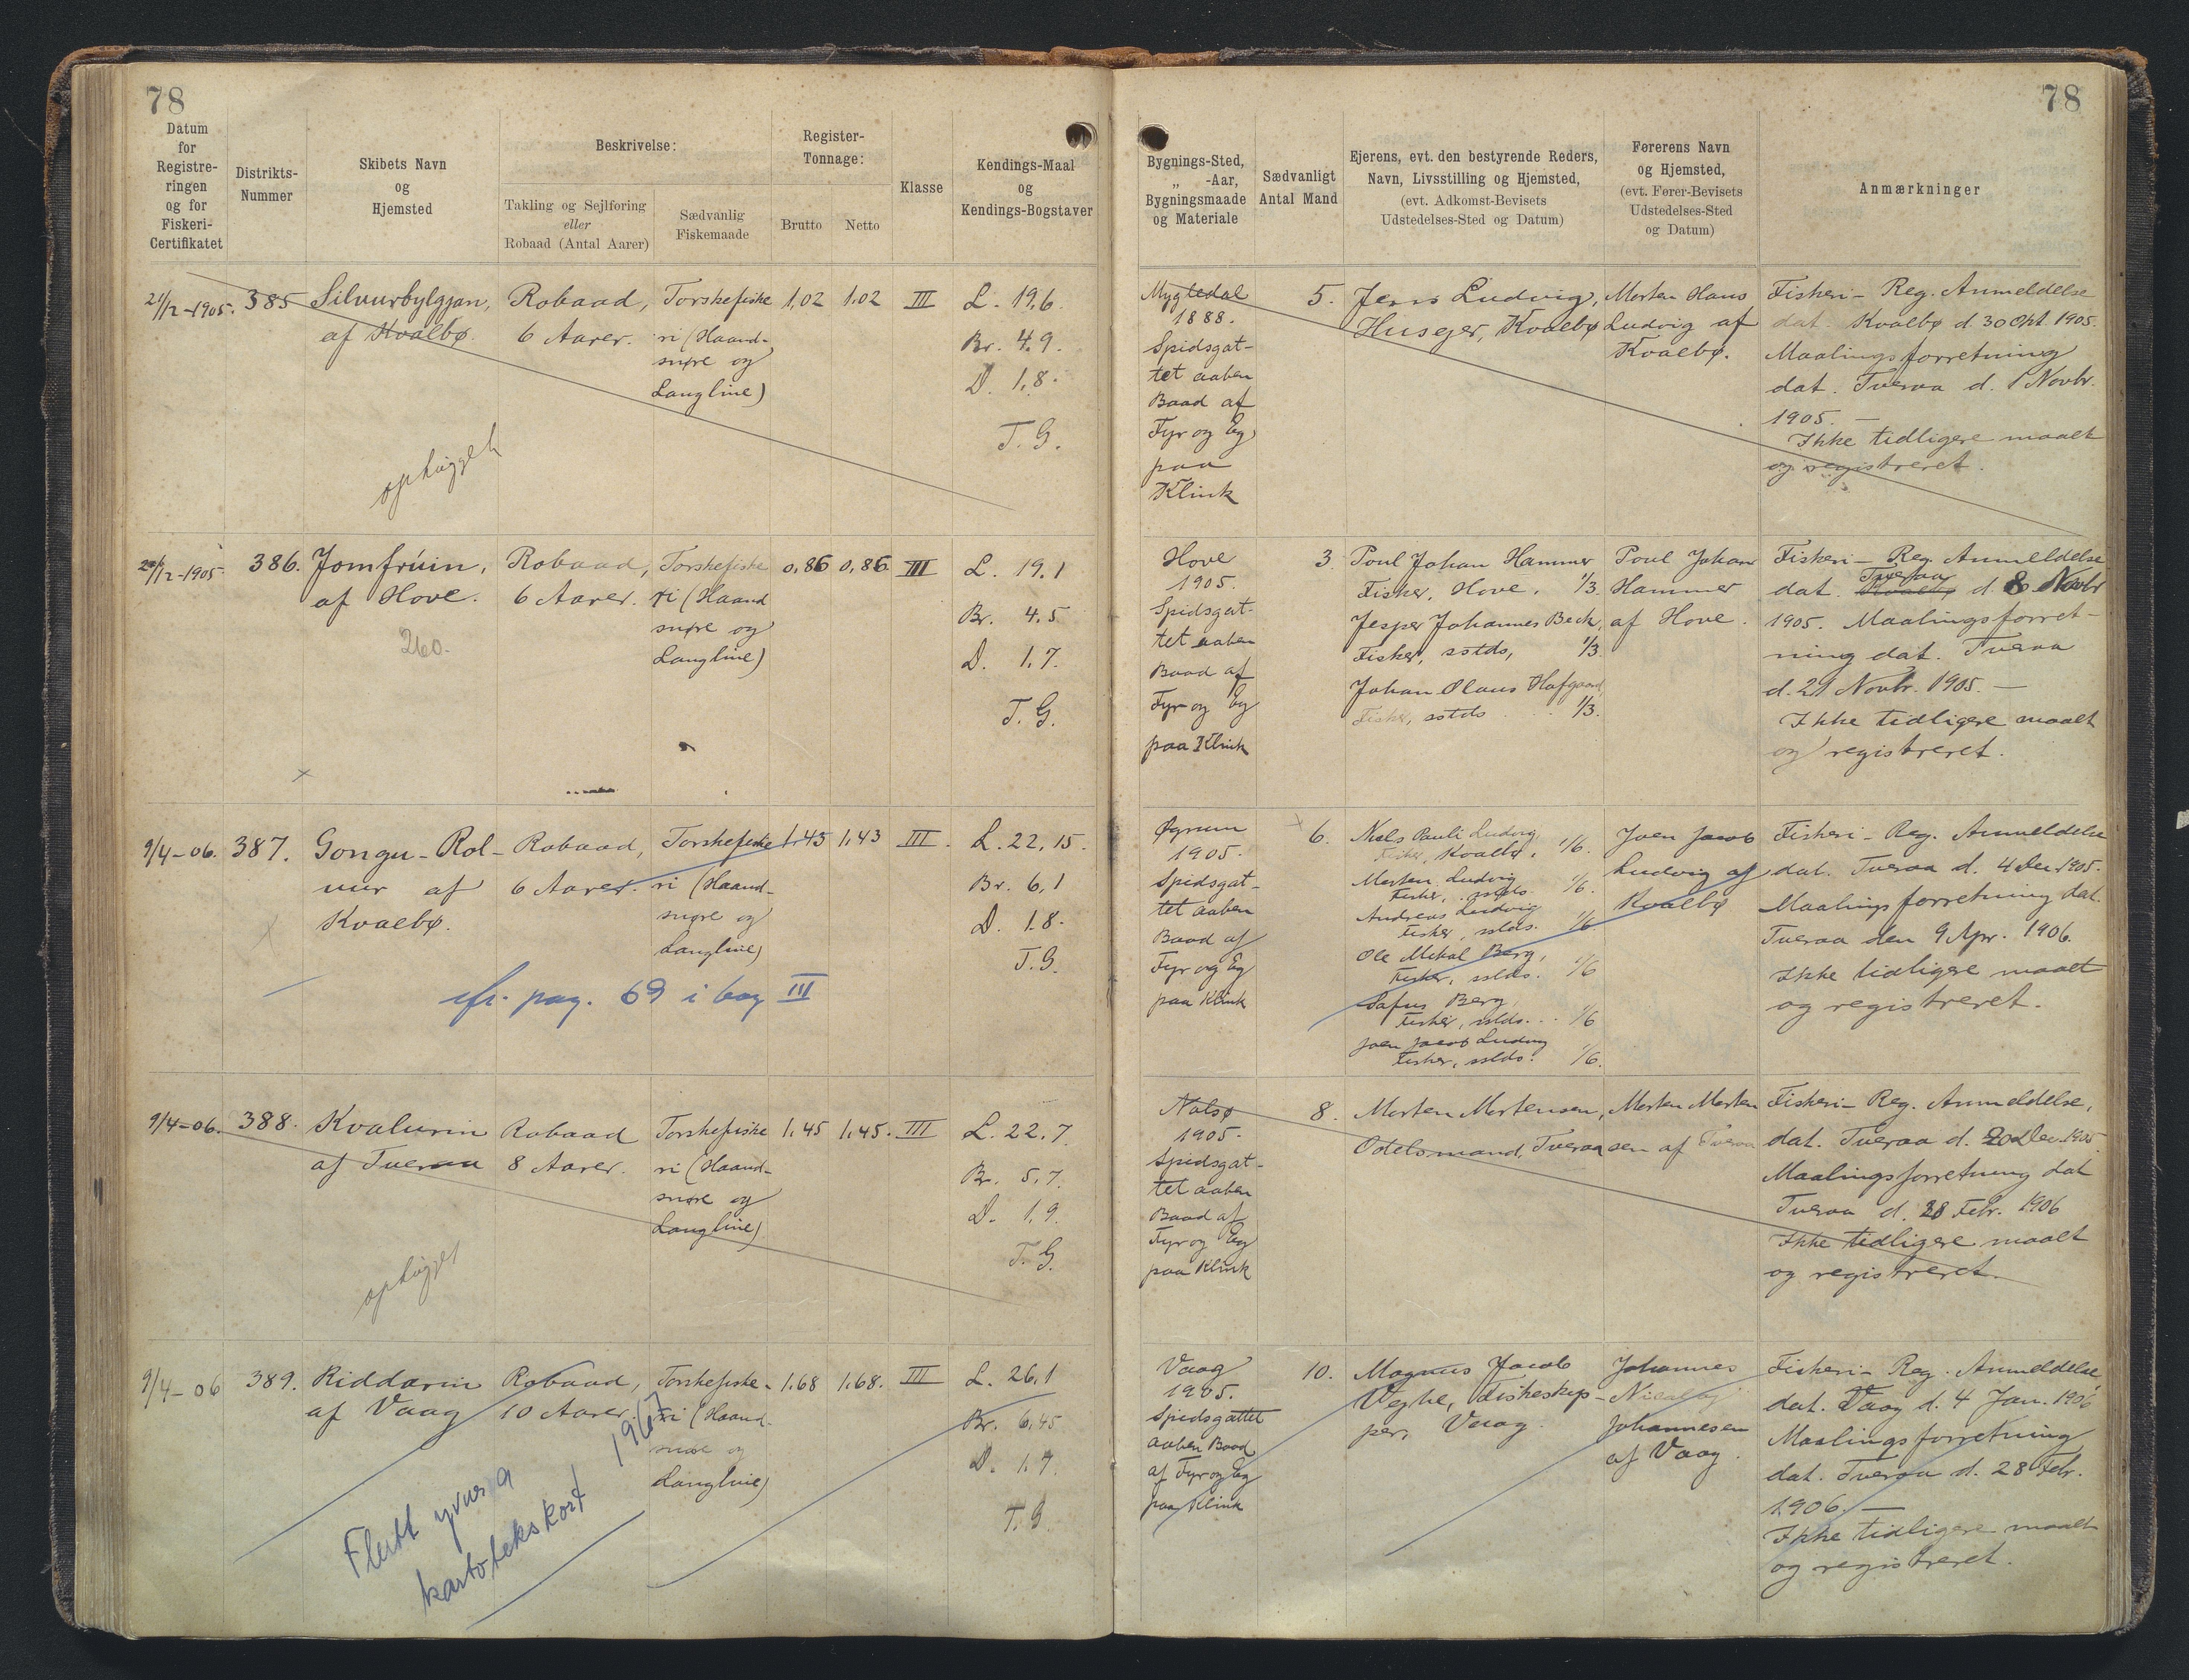 78
78
Datum
for
Registre-
ringen
og for
Fiskeri-
Certifikatet
Distrikts-
Nummer
Skibets Navn
og
Hjemsted
Beskrivelse:
Takling og Sejlføring
eller
Robaad (Antal Aarer)
Sædvanlig
Fiskemaade
Register-
Tonnage:
Brutto
Netto
Klasse
Kendings-Maal
og
Kendings-Bogstaver
Bygnings-Sted,
„ -Aar,
Bygningsmaade
og Materiale
Sædvanligt
Antal Mand
Ejerens, evt. den bestyrende Reders,
Navn, Livsstilling og Hjemsted,
(evt. Adkomst-Bevisets
Udstedelses-Sted og Datum)
Førerens Navn
og Hjemsted,
(evt. Fører-Bevisets
Udstedelses-Sted
og Datum)
Anmærkninger
21/12-1905.
385
Silvurbylgjan,
af Kvalbø.
ophugget
Robaad,
6 Aarer.
Torskefiske
ri (Haand-
snøre og
Langline)
1,02
1,02
III
L. 19,6.
Br. 4,9.
D. 1,8.
T. G.
Mygledal
1888.
Spidsgat-
tet aaben
Baad af
Fyr og Eg
paa
Klink
5.
Jens Ludvig,
Husejer, Kvalbø
Morten Hans
Ludvig af
Kvalbø.
Fiskeri- Reg. Anmeldelse
dat. Kvalbø d. 30 Okt. 1905.
Maalingsforretning
dat. Tveraa d. 1 Novbr.
1905. —
Ikke tidligere maalt
og registreret.
/12-1905.
386.
Jomfrúin,
af Hove.
260.
Robaad,
6 Aarer.
Torskefiske
ri (Haand
snøre og
Langline)
0,86
0,86
III
L. 19,1
Br. 4,5
D. 1,7.
T. G.
Hove
1905.
Spidsgat-
tet aaben
Baad af
Fyr og Eg
paa Klink
3.
Poul Johan Hammer
Fisker, Hove, 1/3.
Jesper Johannes Beck,
Fisker, sstds, 1/3.
Johan Olaus Hofgaard,
Fisker, sstds 1/3.
Poul Johan
Hammer
af Hove.
Fiskeri- Reg. Anmeldelse
Tveraa
dat. Kvalbø d. 8 Novbr
1905. Maalingsforret-
ning dat. Tveraa
d. 21 Novbr. 1905. —
Ikke tidligere maalt
og registreret.
9/4-06.
387.
Gongu-Rol-
vur af
Kvalbø.
Robaad,
6 Aarer.
Torskefiske
ri (Haand-
snøre og
Langline)
1,43
1,43
III.
L. 22,15.
Br. 6,1
D. 1.8.
T. G.
cfr. pag. 69 i bog III
Øgrum
1905.
Spidsgat-
tet aaben
Baad af
Fyr og Eg
paa Klink
6.
Niels Pauli Ludvig,
Fisker, Kvalbø, 1/6.
Morten Ludvig
Fisker, sstds. 1/6.
Andreas Ludvig
Fisker, sstds. 1/6
Ole Mikal Berg,
Fisker, sstds. 1/6
Sofus Berg,
Fisker, sstds. 1/6
Joen Jacob Ludvig
Fisker, sstds. 1/6.
Joen Jacob
Ludvig af
Kvalbø
Fiskeri- Reg. Anmeldelse
dat. Tveraa d. 4 Dec. 1905.
Maalingsforretning dat.
Tveraa den 9 Apr. 1906.
Ikke tidligere maalt
og registreret.
9/4-06.
388.
Kvalurin
af Tveraa
ophugget
Robaad
8 Aarer.
Torskefiske
ri (Haand-
snøre og
Langline)
1,45
1,45.
III
L. 22,7.
Br. 5,7.
D. 1,9.
T. G.
Nolsø
1905.
Spidsgat-
tet aaben
Baad af
Fyr og Eg
paa Klink
8.
Morten Mortensen,
Odelsmand, Tveraa
Morten Morten
sen af Tveraa
Fiskeri- Reg. Anmeldelse,
dat. Tveraa d. 20 Dec. 1905
Maalingsforretning dat
Tveraa d. 28 Febr. 1906
Ikke tidligere maalt
og registreret.
9/4-06
389.
Riddarin
af Vaag
Robaad,
10 Aarer.
Torskefiske-
ri (Haand-
snøre og
Langline)
1,68
1,68.
III
L. 26,1
Br. 6,45
D. 1.9.
T. G.
Flutt yvur á
kartotekskort 1967
Vaag
1905.
Spidsgattet
aaben Baad
af Fyr og Eg
paa Klink
10.
Magnus Jacob
Veghe, Fiskeskip-
per, Vaag.
Johannes
Nicolaj
Johannesen
af Vaag.
Fiskeri- Reg. Anmeldelse,
dat. Vaag d. 4 Jan. 1906
Maalingsforretning,
dat. Tveraa d. 28 Febr.
1906. —
Ikke tidligere maalt
og registreret.